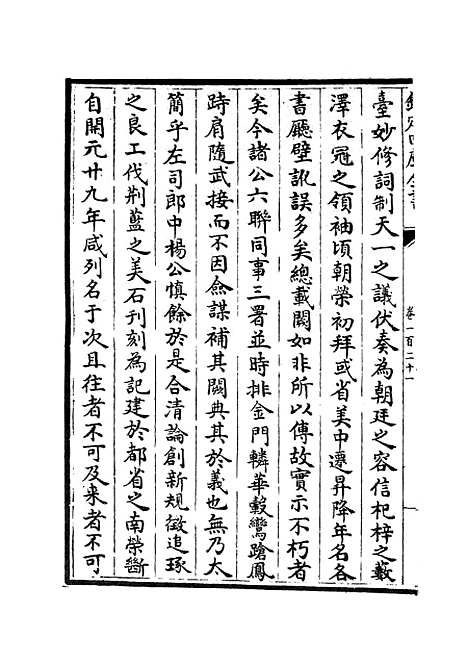 臺妙修詞制天一之議伏奏為朝廷之容信杞梓之藪
澤衣冠之領袖頃朝榮初拜或省美中遷昇降年名各
書廳壁訛誤多矣總載闕如非所以傳故實示不朽者
矣今諸公六聯同事三署並時排金門轔華轂鸞蹌鳳
跱肩隨武接而不因僉謀補其闕典其於義也無乃太
簡乎左司郎中楊公慎餘於是合清論創新規徵追琢
之良工伐荆藍之美石刊刻為記建於都省之南榮斷
自開元廿九年咸列名于次且往者不可及来者不可